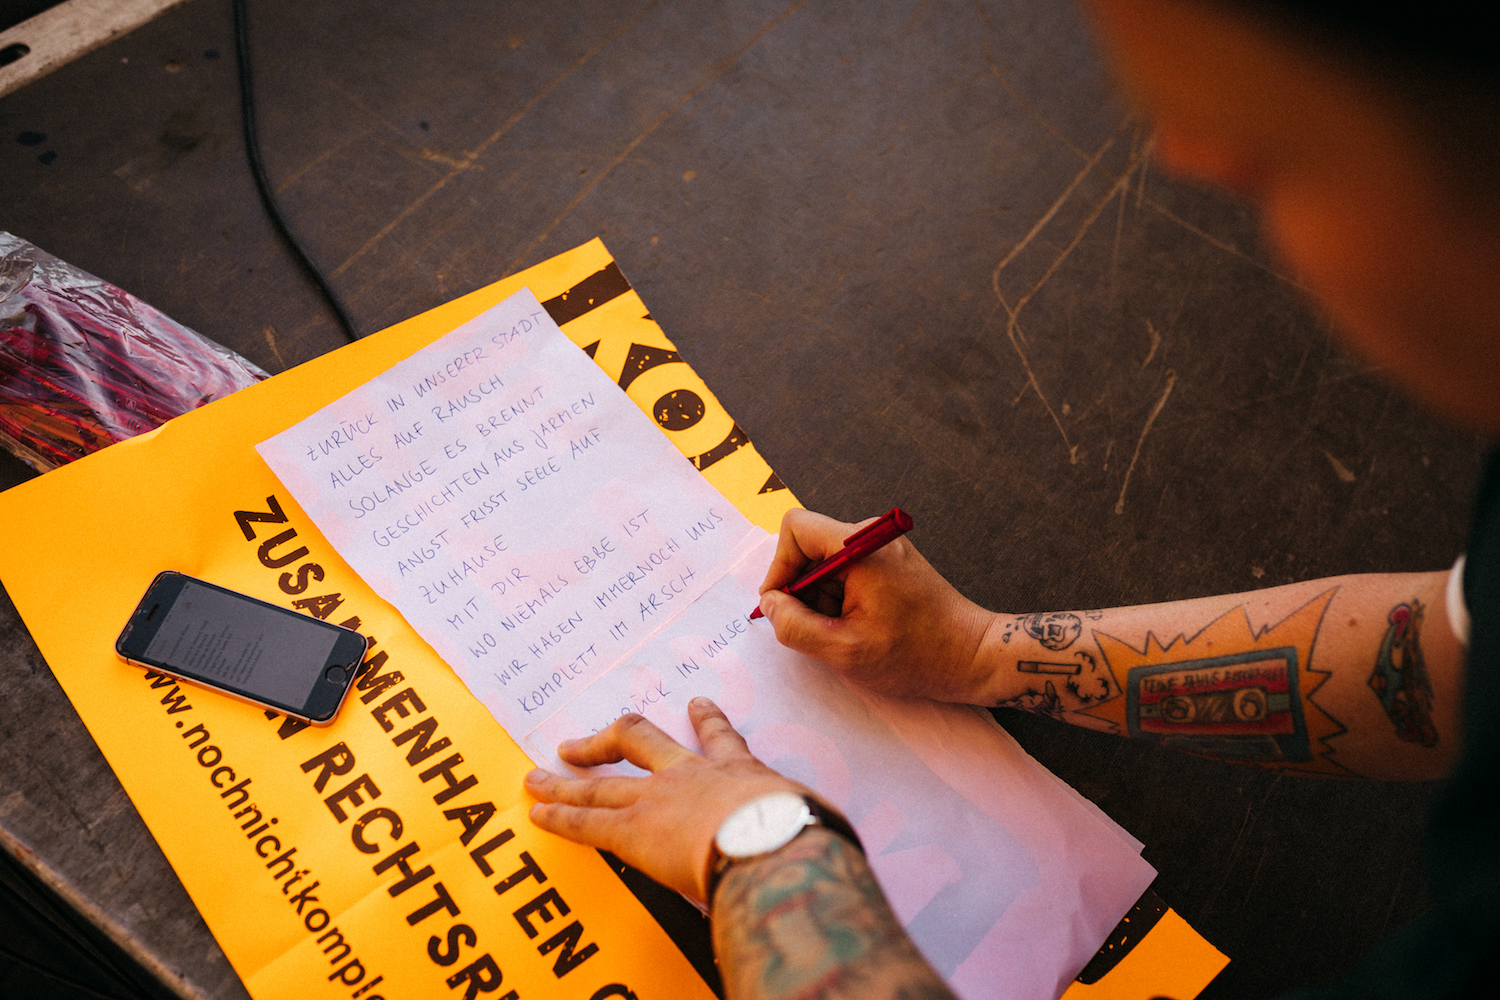 ZURÜCK IN UNSERER STADT
ALLES AUF RAUSCH
SOLANGE ES BRENNT
GESCHICHTEN AUS JARMEN
ANGST FRISST SEELE AUF
ZUHAUSE
MIT DIR
WO NIEMALS EBBE IST
WIR HABEN IMMERNOCH UNS
KOMPLETT IM ARSCH
ZURÜCK IN UNSER
ZUSAMMENHALTEN G
N RECHTSR
www.nochnichtkomple
KOM